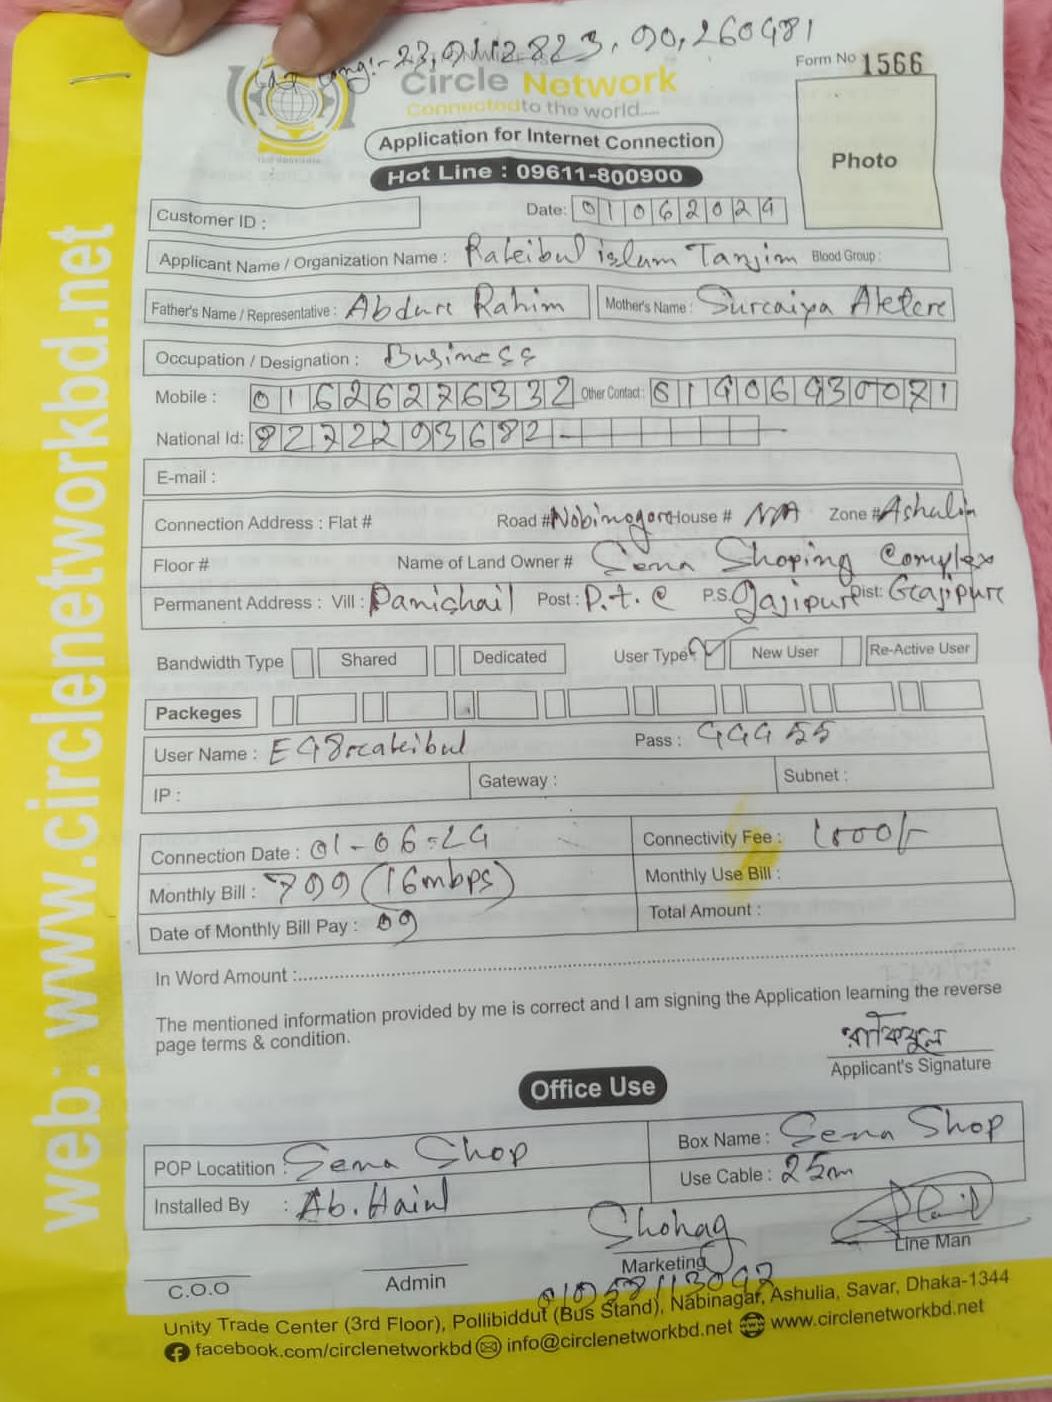 23,9412823, 90,260481
Form No 1566
Circle Network
Connected to the world.....
Application for Internet Connection
Photo
Hot Line : 09611-800900
Customer ID :
Date: 01062024
Applicant Name / Organization Name : Rakibul islam Tanjim Blood Group :
Father's Name / Representative : Abdur Rahim Mother's Name : Surcaiya Akter
Occupation / Designation : Business
Mobile : 01626276332 Other Contact: 01906930071
National Id: 8272293682
E-mail :
Connection Address : Flat # Road # Nobinogor House # N/A Zone # Ashulia
Floor # Name of Land Owner # Sena Shoping Complex
Permanent Address : Vill : Panishail Post : P.t.C P.S. Gajipur Dist: Gajipur
Bandwidth Type Shared Dedicated User Type New User Re-Active User
Packeges
User Name : E48rcakibul Pass : 444 55
IP : Gateway : Subnet :
Connection Date : 01-06-24 Connectivity Fee : 1000/-
Monthly Bill : 799 (16mbps) Monthly Use Bill :
Date of Monthly Bill Pay : 09 Total Amount :
In Word Amount :
The mentioned information provided by me is correct and I am signing the Application learning the reverse
page terms & condition.
রাকিবুল
Applicant's Signature
Office Use
POP Locatition : Sena Shop Box Name : Sena Shop
Installed By : Ab. Use Cable : 25m
Shohag
C.O.O Admin Marketing Line Man
Unity Trade Center (3rd Floor), Pollibiddut (Bus Stand), Nabinagar, Ashulia, Savar, Dhaka-1344
facebook.com/circlenetworkbd info@circlenetworkbd.net www.circlenetworkbd.net
web: www.circlenetworkbd.net